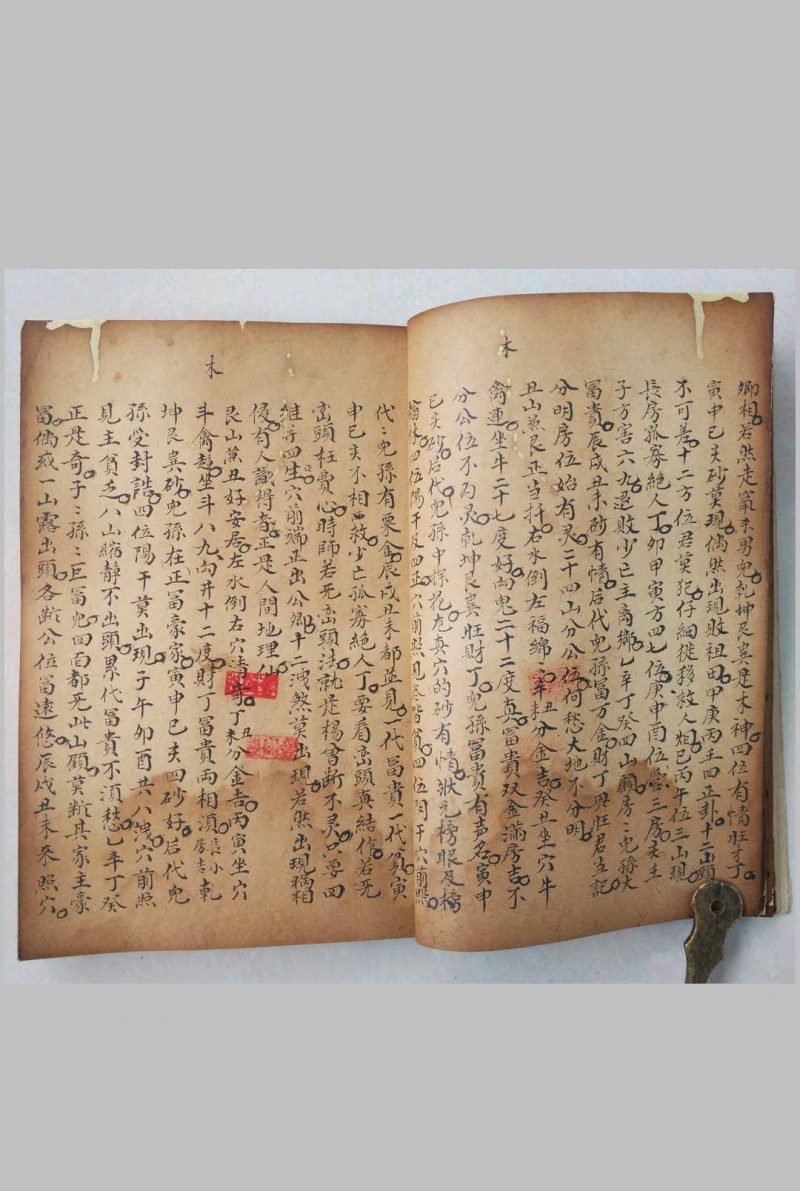 木
卿相若然走竄來男兒乾坤艮巽是木神四位有情旺才丁
寅申巳亥砂莫現倘然出現敗祖田甲庚丙壬四正卦十二山頭
不可差十二方位君莫犯仔細從移救人烟巳丙午位三山現
長房孤寡絕人丁卯甲寅方四七位庚申酉位害三房亥壬
子方害六九退敗少亡主离鄉乙辛丁癸四山顧房房兒孫大
冨貴辰戌丑未砂有情后代兒孫冨万金財丁興旺君立記
分明房位始有灵二十四山分公位何愁大地不分明
丑山兼艮正当扦右水倒左福綿綿辛丑辛未分金吉癸丑坐穴牛
禽連坐牛二十七度好向鬼二十二度真冨貴双金滿房吉不
分公位不為灵乾坤艮巽旺財丁兒孫冨貴有声名寅申
巳亥砂后代兒孫中探花龙真穴的砂有情狀元榜眼及榜
翰林四位陽干及四正穴前照見
木
代代兒孫有粟金辰戌丑未都並見一代冨貴一代貧寅
申巳亥不相救少亡孤寡絕人丁要看巒頭真結作若无
巒頭枉費心時師若无巒頭法就是楊曾断不灵只要四
維四生穴前端正出公卿十二洩然莫出現若然出現禍相
侵有人識得者正是人間地理仙
艮山兼丑好安居左水倒右穴清奇丁丑丁未分金吉丙寅坐穴
斗禽趋坐斗八九向井十二度財丁冨貴両相須長小房吉乾
坤艮巽砂兒孫在正冨豪家寅申巳亥四砂好后代兒
孫受封誥四位陽干莫出現子午卯酉共八洩穴前照
見主貧乏八山縮静不出頭累代冨貴不須愁乙辛丁癸
正是奇子子孫孫巨冨兒四面都无此山顧莫断其家主豪
冨倘或一山露出頭各断公位冨遠悠辰戌丑未來照穴